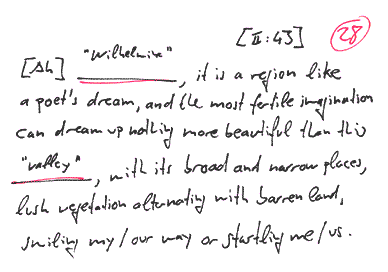 "Wilhelmine" [II:43] 28
[Ah] ________, it is a region like
a poet's dream, and the most fertile imagination
can dream up nothing more beautiful than this
"valley"
________, with its broad and narrow places,
lush vegetation alternating with barren land,
smiling my/our way or startling me/us.